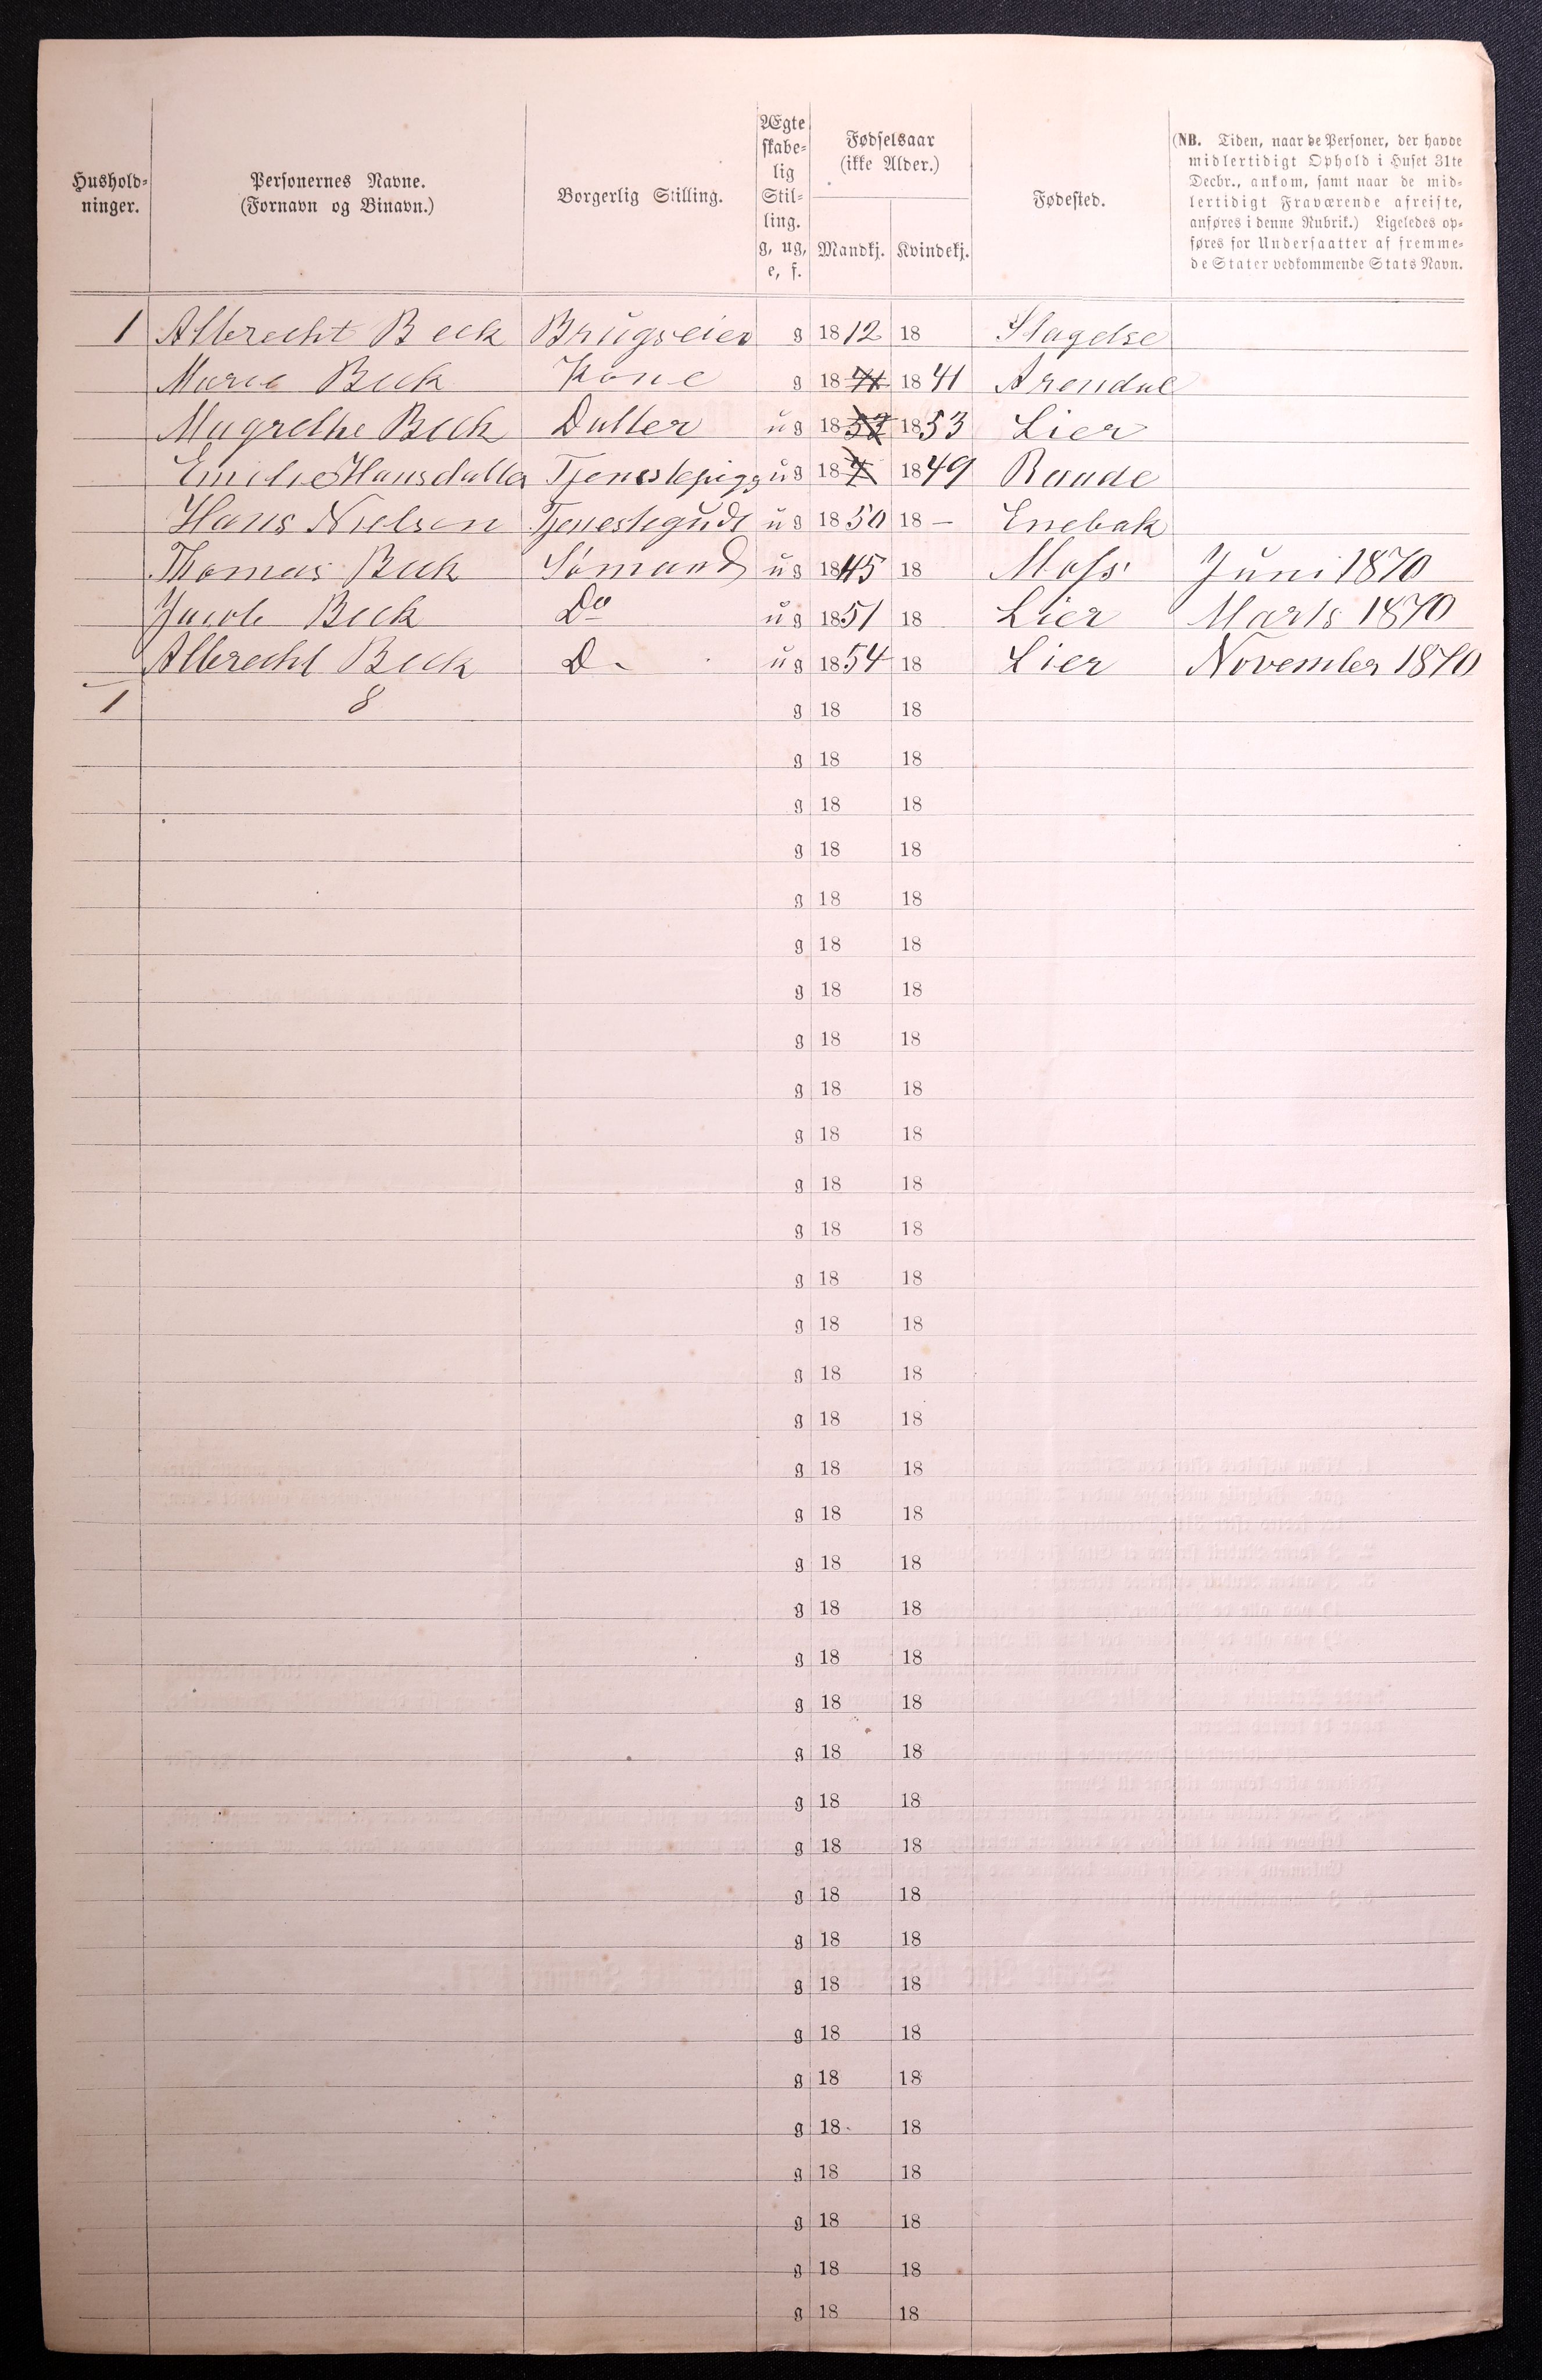 Hushold-
ninger.
Personernes Navne.
(Fornavn og Binavn.)
Borgerlig Stilling.
Ægte
skabe-
lig
Stil-
ling.
g, ug,
e, f.
Fødselsaar
(ikke Alder.)
Mandkj. Kvindekj.
Fødested.
(NB. Tiden, naar de Personer, der havde
midlertidigt Ophold i Huset 31te
Decbr., ankom, samt naar de mid-
lertidigt Fraværende afreiste,
anføres i denne Rubrik.) Ligeledes op-
føres for Undersaatter af fremme-
de Stater vedkommende Stats Navn.
1 Albrecht Beck Brugseier g 1812 18 Slagelse
Marie Beck Kone g 1841 1841 Arendal
Magrethe Beck Datter ug 1853 1853 Lier
Emilie Hansdatter Tjenestepige ug 184 1849 Raade
Hans Nielsen Tjenestegudt ug 1850 18 – Enebak
Thomas Beck Sømand ug 1845 18 Moss Juni 1870
Jacob Beck Do ug 1851 18 Lier Marts 1870
Albrecht Beck D– ug 1854 18 Lier November 1870
1 8 g 18 18
g 18 18
g 18 18
g 18 18
g 18 18
g 18 18
g 18 18
g 18 18
g 18 18
g 18 18
g 18 18
g 18 18
g 18 18
g 18 18
g 18 18
g 18 18
g 18 18
g 18 18
g 18 18
g 18 18
g 18 18
g 18 18
g 18 18
g 18 18
g 18 18
g 18 18
g 18 18
g 18 18
g 18 18
g 18 18
g 18 18
g 18 18
g 18 18
g 18 18
g 18 18